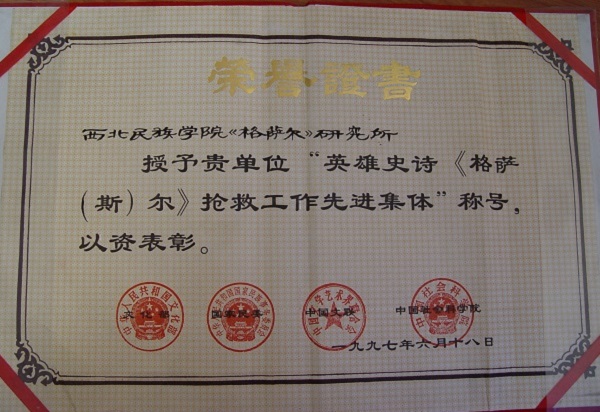 荣誉證書
西北民族学院《格萨尔》研究所
授予贵单位“英雄史诗《格萨
（斯）尔》抢救工作先进集体”称号，
以资表彰。
文化部 国家民委 中国文联 中国社会科学院
一九九七年六月十八日